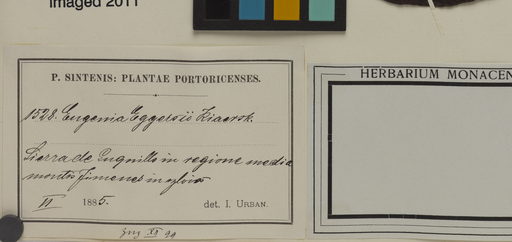 Imaged 2011
P. SINTENIS: PLANTAE PORTORICENSES.
HERBARIUM MONACEN
1528. Eugenia Eggersii Kiaersk.
Sierra de Luquillo in regione media
montis Jimenes in sylvis
VI 1885. det. I. URBAN.